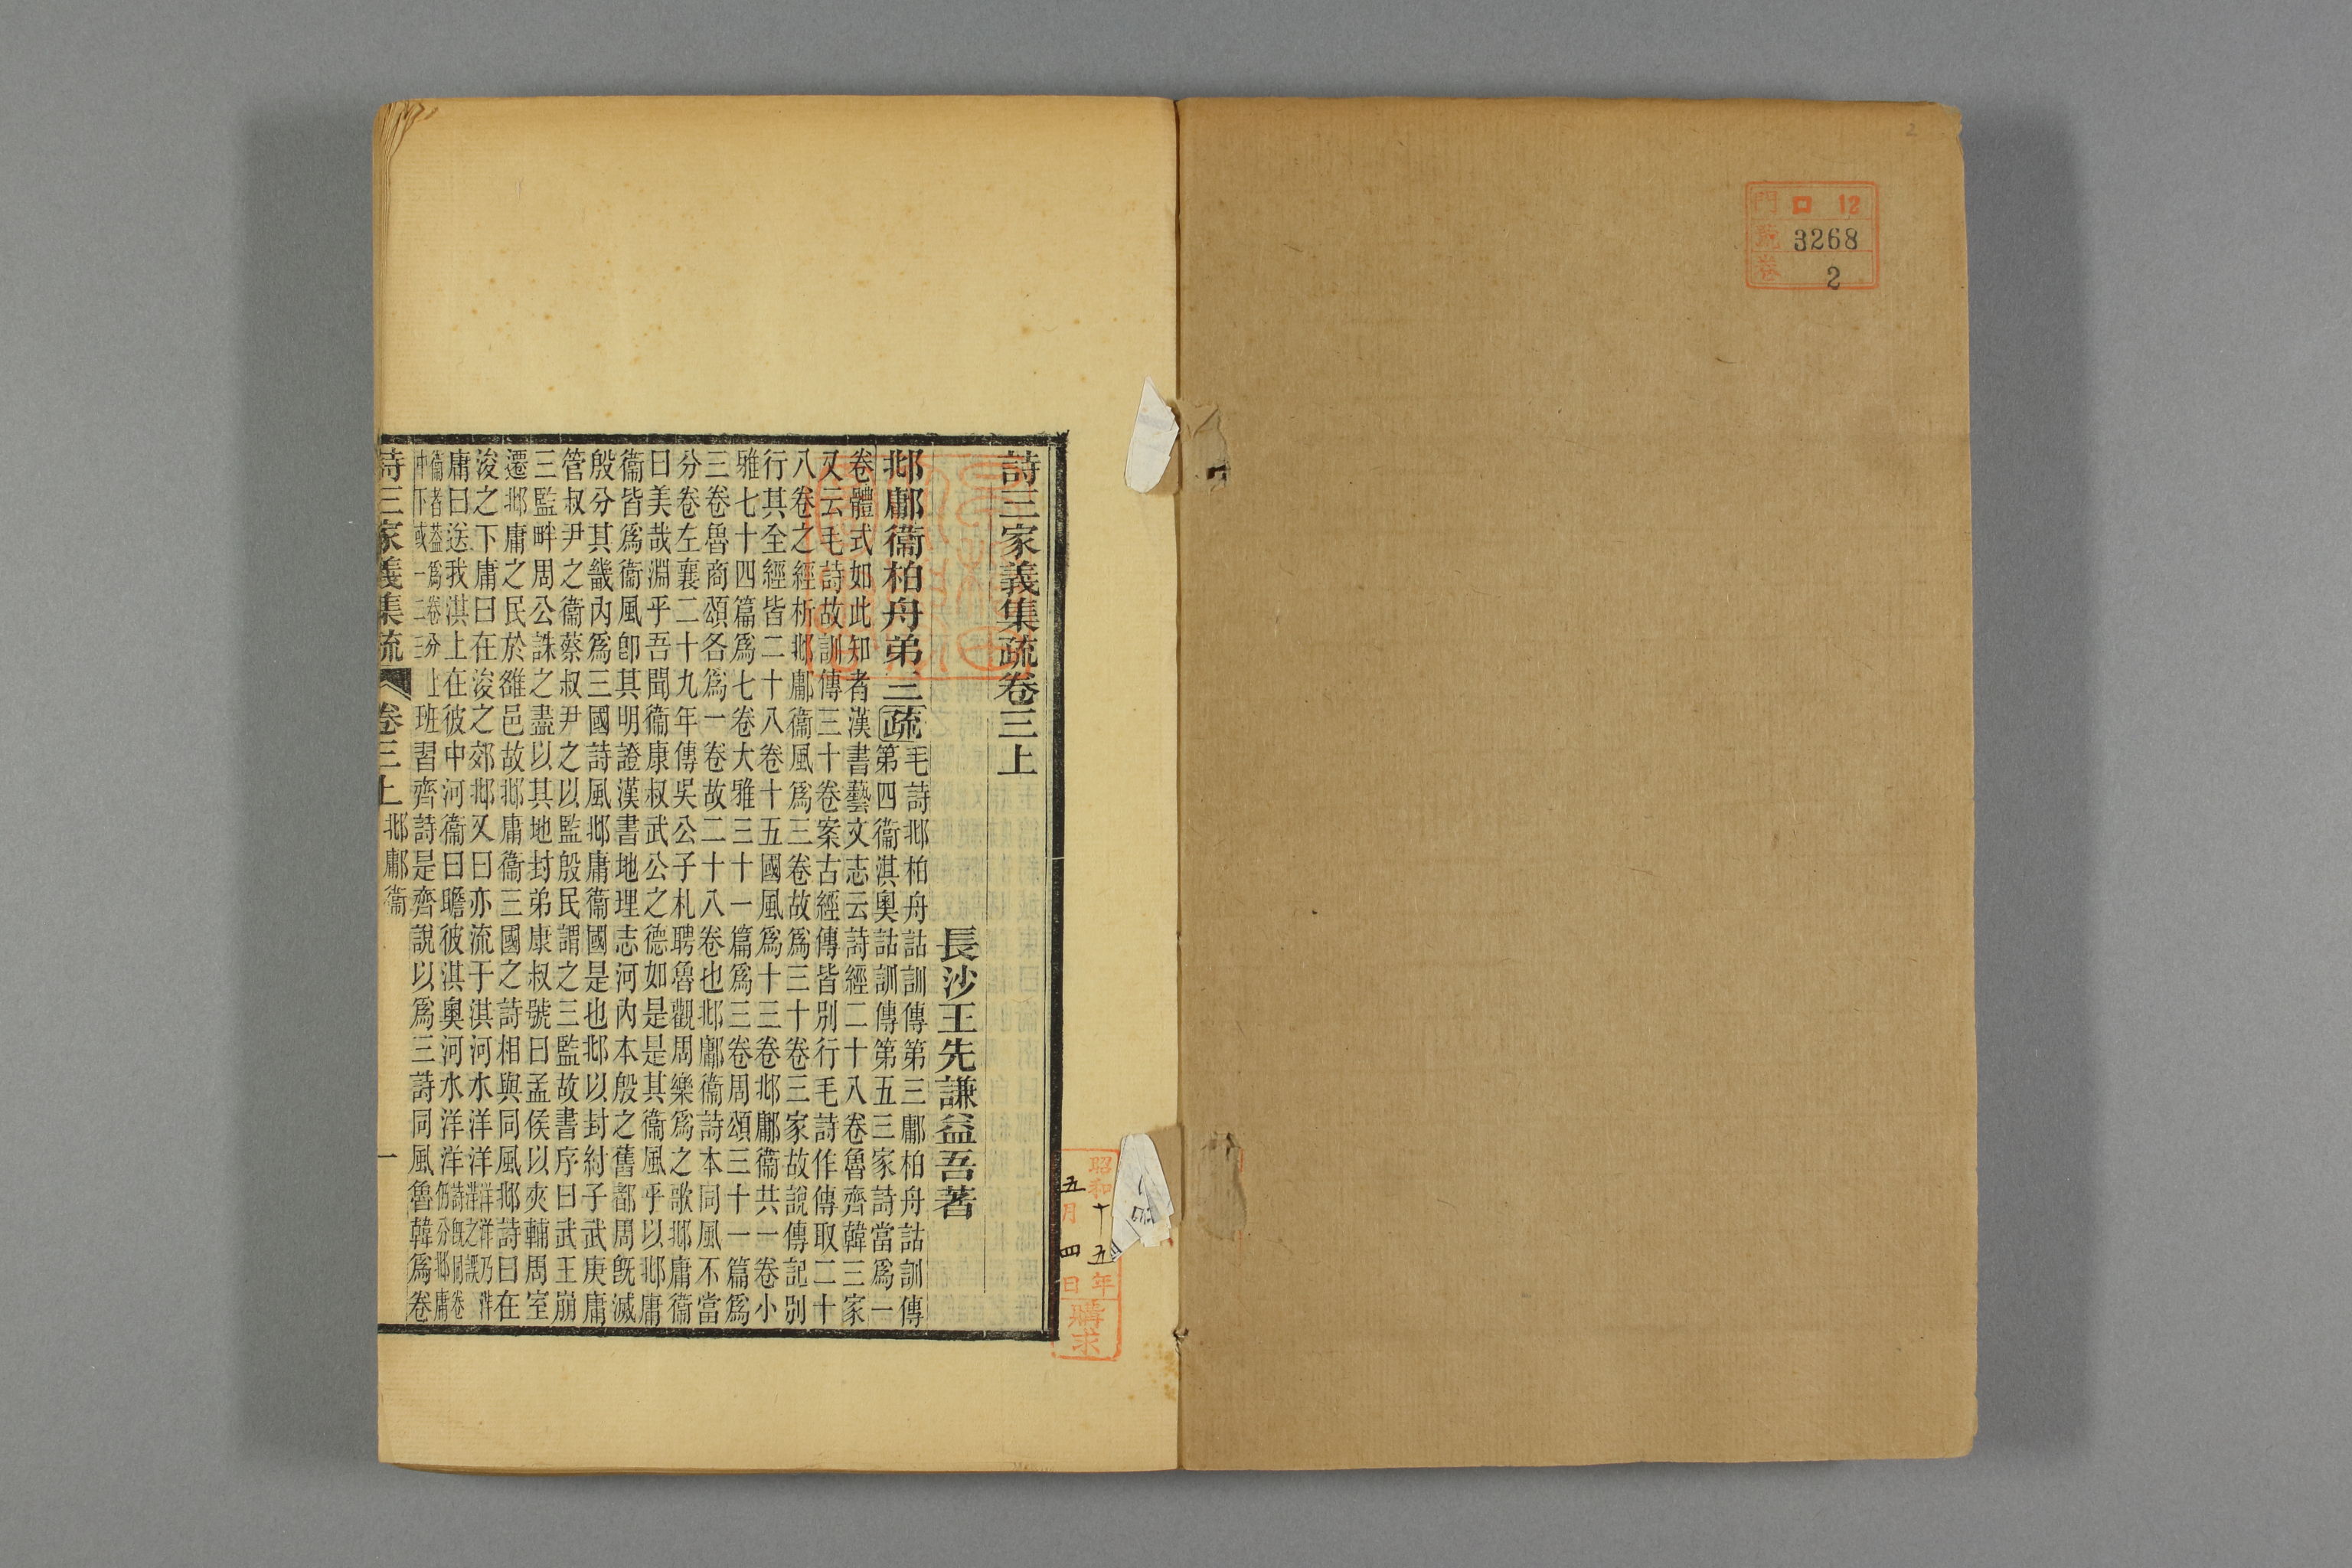 2
門 ロ 12
號 3268
卷 2
詩三家義集疏卷三上
長沙王先謙益吾著
邶鄘衞柏舟弟三疏
毛詩邶柏舟詁訓傳第三鄘柏舟詁訓傳
第四衞淇奧詁訓傳第五三家詩當爲一
卷體式如此知者漢書藝文志云詩經二十八卷魯齊韓三家
又云毛詩故訓傳三十卷案古經傳皆別行毛詩作傳取二十
八卷之經析邶鄘衞風爲三卷故爲三十卷三家故說傳記別
行其全經皆二十八卷十五國風爲十三卷邶鄘衞共一卷小
雅七十四篇爲七卷大雅三十一篇爲三卷周頌三十一篇爲
三卷魯商頌各爲一卷故二十八卷也邶鄘衞詩本同風不當
分卷左襄二十九年傳吳公子札聘魯觀周樂爲之歌邶庸衞
曰美哉淵乎吾聞衞康叔武公之德如是是其衞風乎以邶庸
衞皆爲衞風卽其明證漢書地理志河內本殷之舊都周旣滅
殷分其畿內爲三國詩風邶庸衞國是也邶以封紂子武庚庸
管叔尹之衞蔡叔尹之以監殷民謂之三監故書序曰武王崩
三監畔周公誅之盡以其地封弟康叔號曰孟侯以夾輔周室
遷邶庸之民於雒邑故邶庸衞三國之詩相與同風邶詩曰在
浚之下庸曰在浚之郊邶又曰亦流于淇河水洋洋洋洋乃泮泮之誤
庸曰送我淇上在彼中河衞曰瞻彼淇奧河水洋洋詩旣同卷仍分邶庸
衞者蓋爲卷分上中下或一二三班習齊詩是齊說以爲三詩同風魯韓爲卷
詩三家義集疏 卷三上 邶鄘衞 一
昭和十五年
五月四日
購求